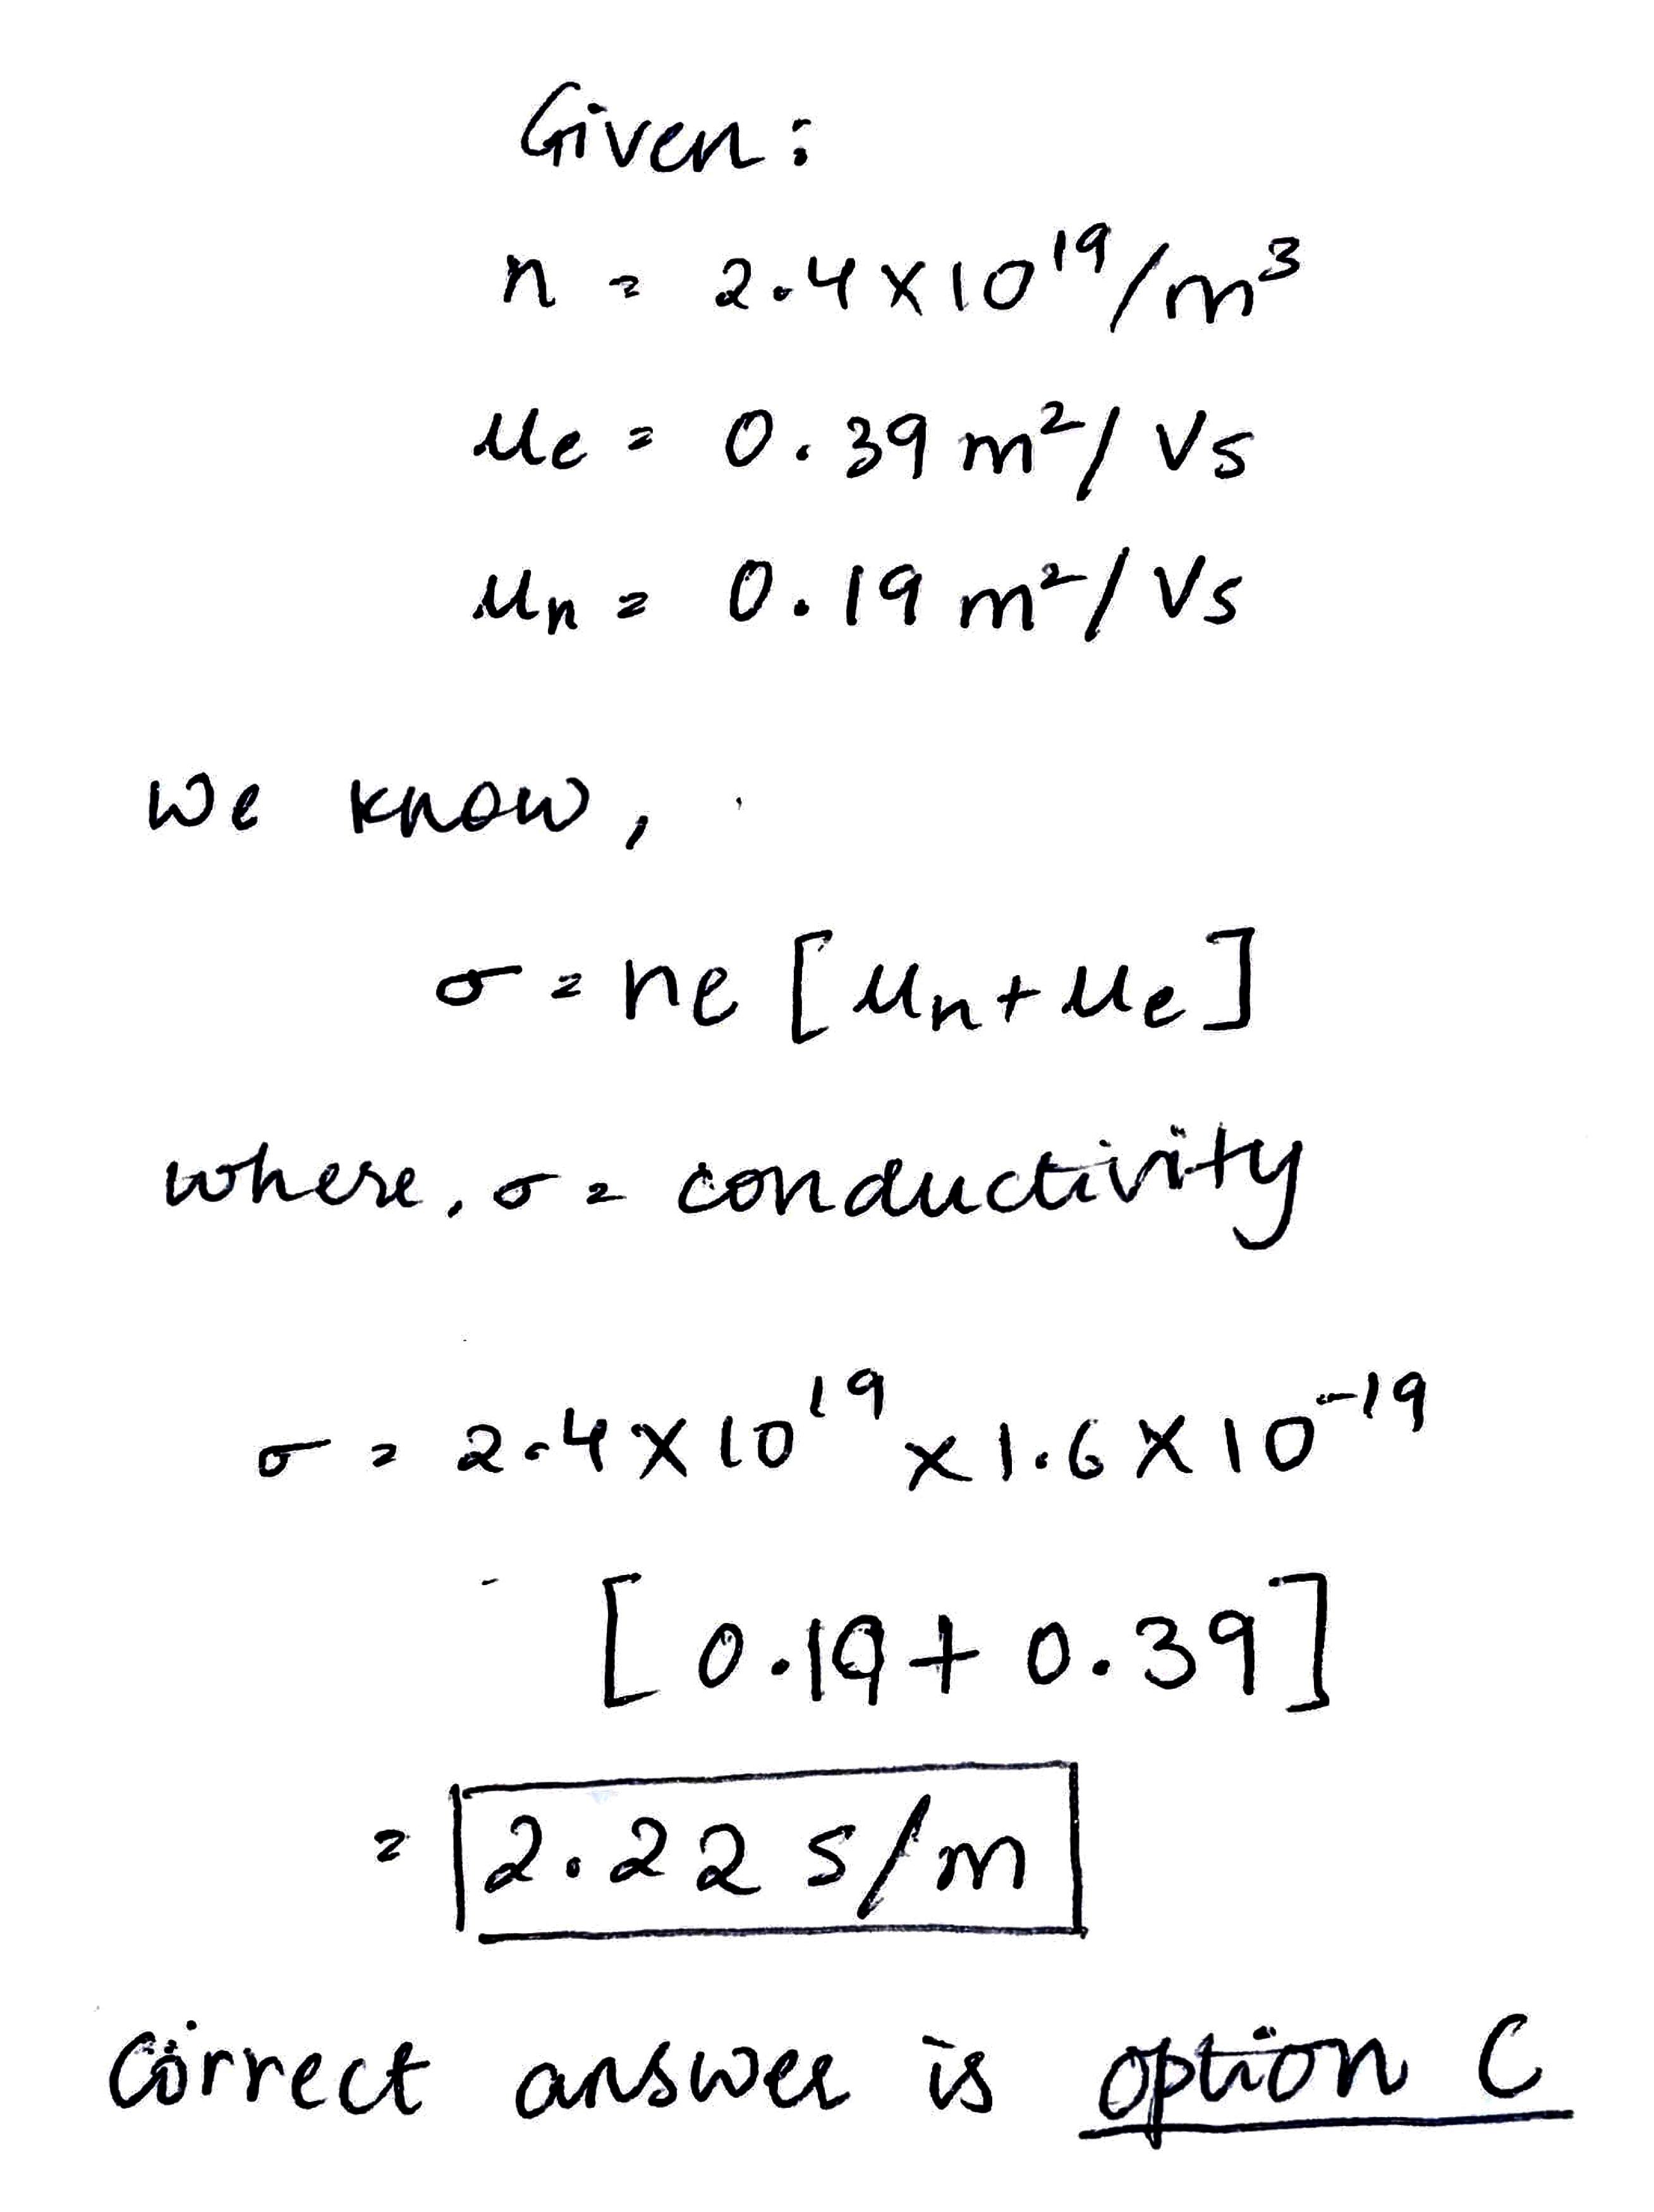 Given:
n = 2.4×10¹⁹/m³
μe = 0.39 m²/Vs
μn = 0.19 m²/Vs
We know,
σ = ne [μn+μe]
where, σ = conductivity
σ = 2.4×10¹⁹×1.6×10⁻¹⁹
[0.19+0.39]
= 2.22 s/m
Correct answer is option C